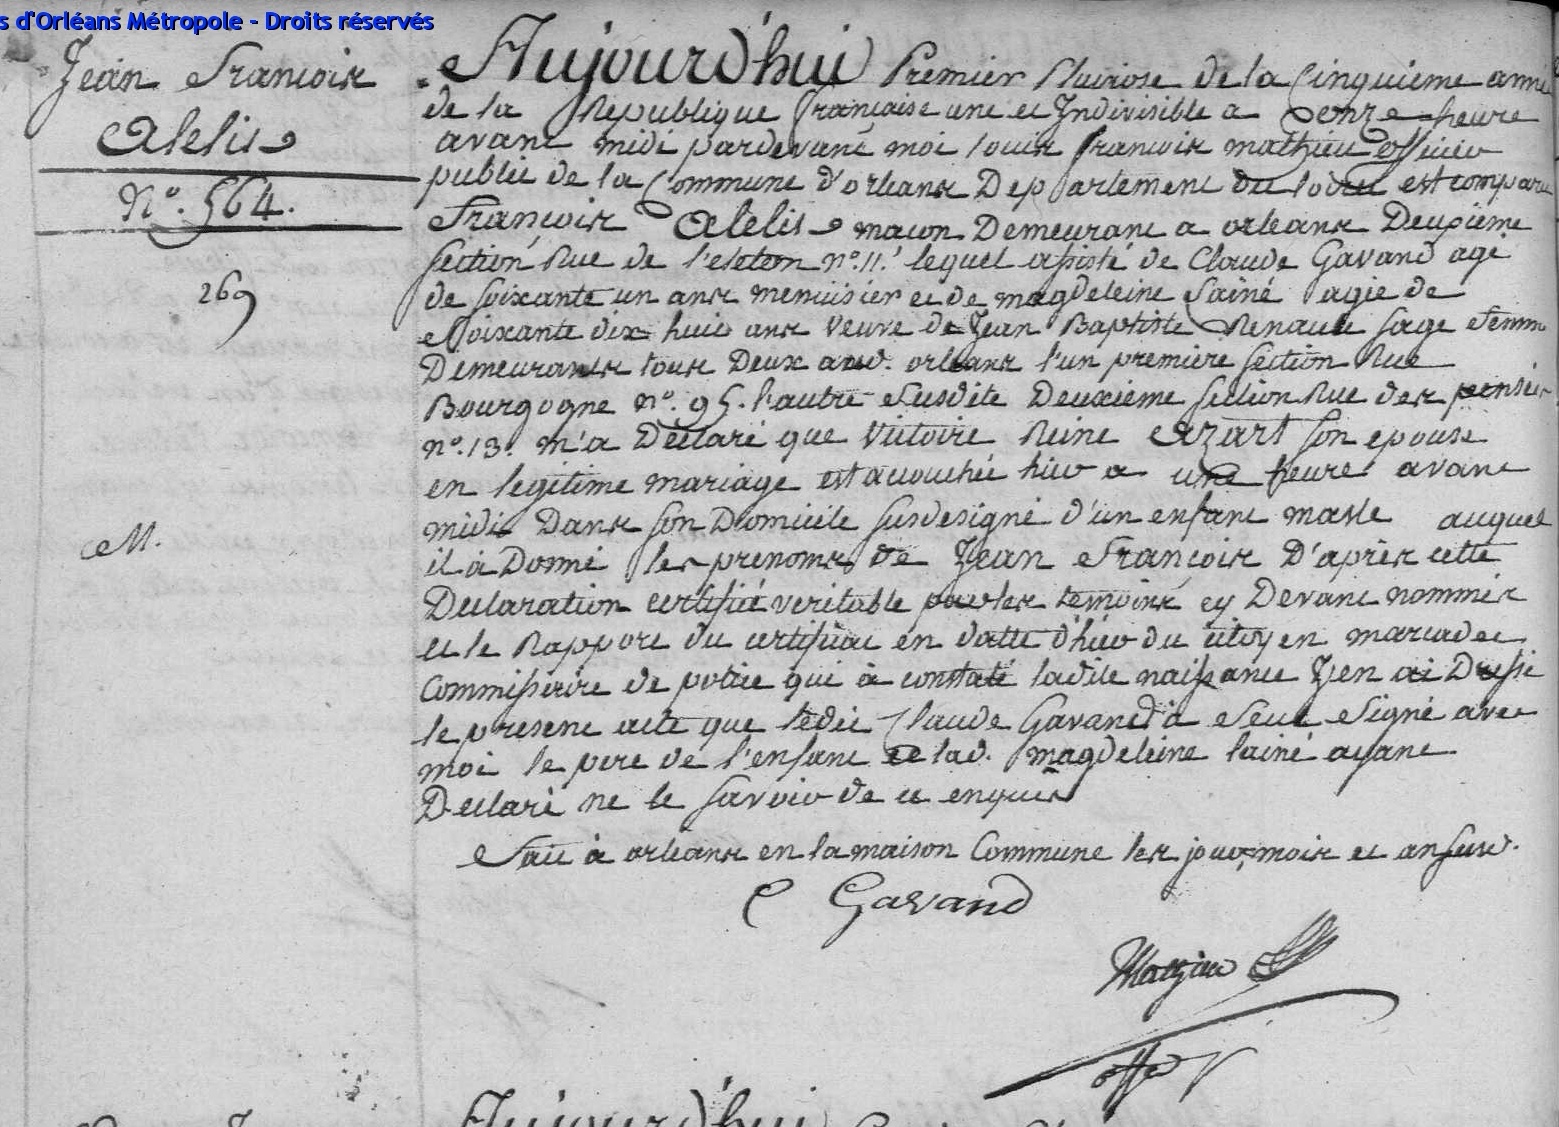 s d'Orléans Métropole - Droits réservés
Jean François
Alelis
N.º 564.
269
M.
Aujourd'hui Premier Pluviose de la Cinquieme anné
de la Republique française une et Indivisible a onze heure
avant midi pardevant moi louis francois mathieu officier
public de la Commune d'orleans Departement du loiret est comparu
François Alelis macon Demeurant a orleans Deuxieme
section Rue de l'eteton nº. 11. lequel assisté de Claude Gavand agé
de soixante un ans menuisier et de magdeleine lainé agée de
Soixante dix huit ans veuve de Jean Baptiste Renault sage femme
Demeurants tous Deux aud. orleans l'un premiere section Rue
Bourgogne nº. 95. l'autre Susdite Deuxieme section Rue des pensées
nº. 13. m'a Déclaré que Victoire Reine Azart son epouse
en legitime mariage est accouchée hier a une heure avant
midi Dans son Domicile susdesigné d'un enfant masle auquel
il à Donné les prenoms de Jean François D'après cette
Declaration certifié veritable par les temoins cy Devant nommés
et le Rapport du certificat en datte d'hier du citoyen mercadee
Commissaire de police qui à constaté ladite naissance J'en ai Dressé
le present acte que ledit Claude Gavand à Seul Signé avec
moi le pere de l'enfant et lad. magdeleine lainé ayant
Declaré ne le savoir de ce enquis
Fait à orleans en la maison Commune les jour, mois et an susd.
C Gavand
Mathieu
offer
Aujourd'hui